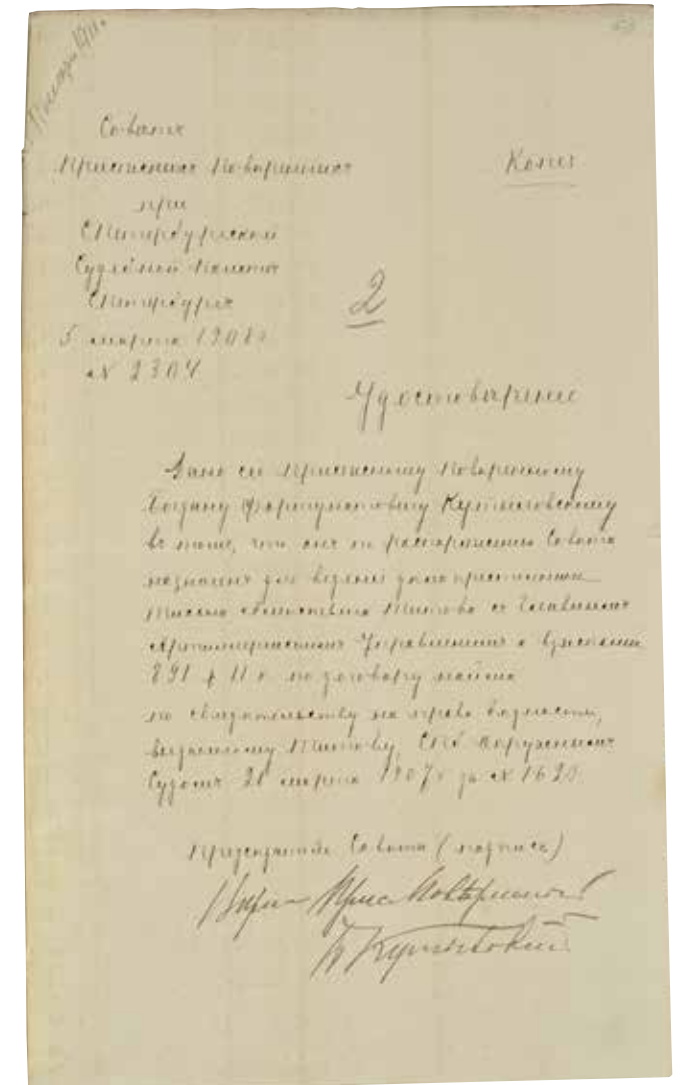 Советъ
Присяжныхъ Повѣренныхъ
при
С.Петербургской
Судебной Палатѣ
С.Петербургъ
5 марта 1908 г.
№ 2304
Копія
2
Удостовѣреніе
Дано сіе Присяжному Повѣренному
Богдану Фортунатовичу
въ томъ, что онъ по распоряженію Совѣта
назначенъ для веденія дѣла крестьянина
Титова съ Главнымъ
Артиллерійскимъ Управленіемъ о взысканіи
891 р 11 к по договору найма
по свидѣтельству на право бѣдности,
выданному Титову, СПб Окружнымъ
Судомъ 20 марта 1907 г за № 1620
Предсѣдатель Совѣта (подпись)
Вѣрно Прис. Повѣренный